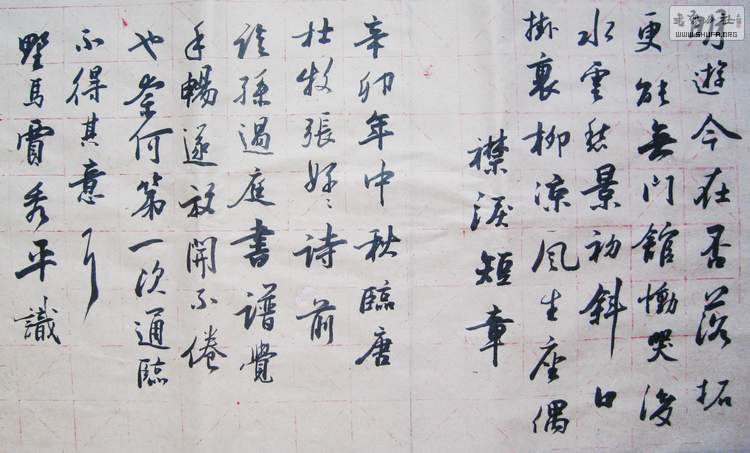 书法公社
WWW.SHUFA.ORG
朋遊今在否落拓
更能無門館慟哭後
水雲愁景初斜日
掛衰柳涼風生座偶
襟淚短章
辛卯年中秋臨唐
杜牧張好〻詩前
孫過庭書譜覺
手暢遂放開不倦
也奈何第一次通臨
不得其意耳
野馬賈秀平識